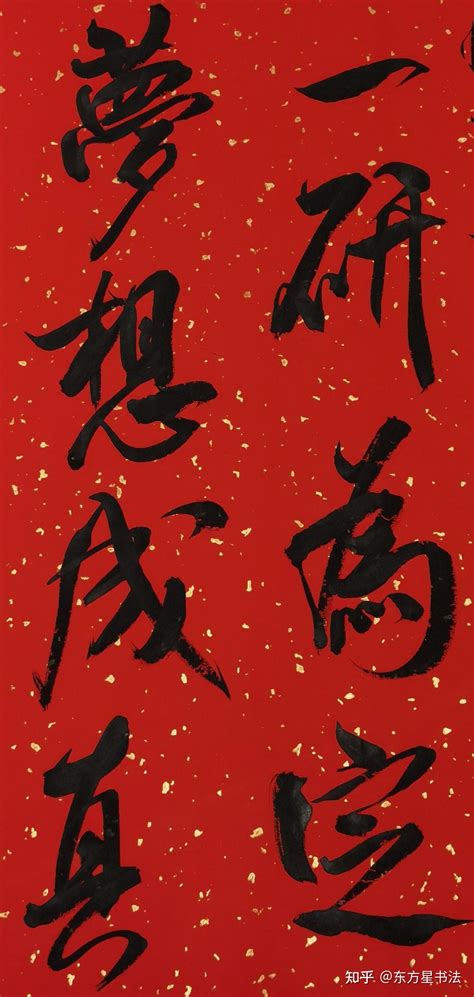 一研為定
夢想成真
知乎 @东方星书法